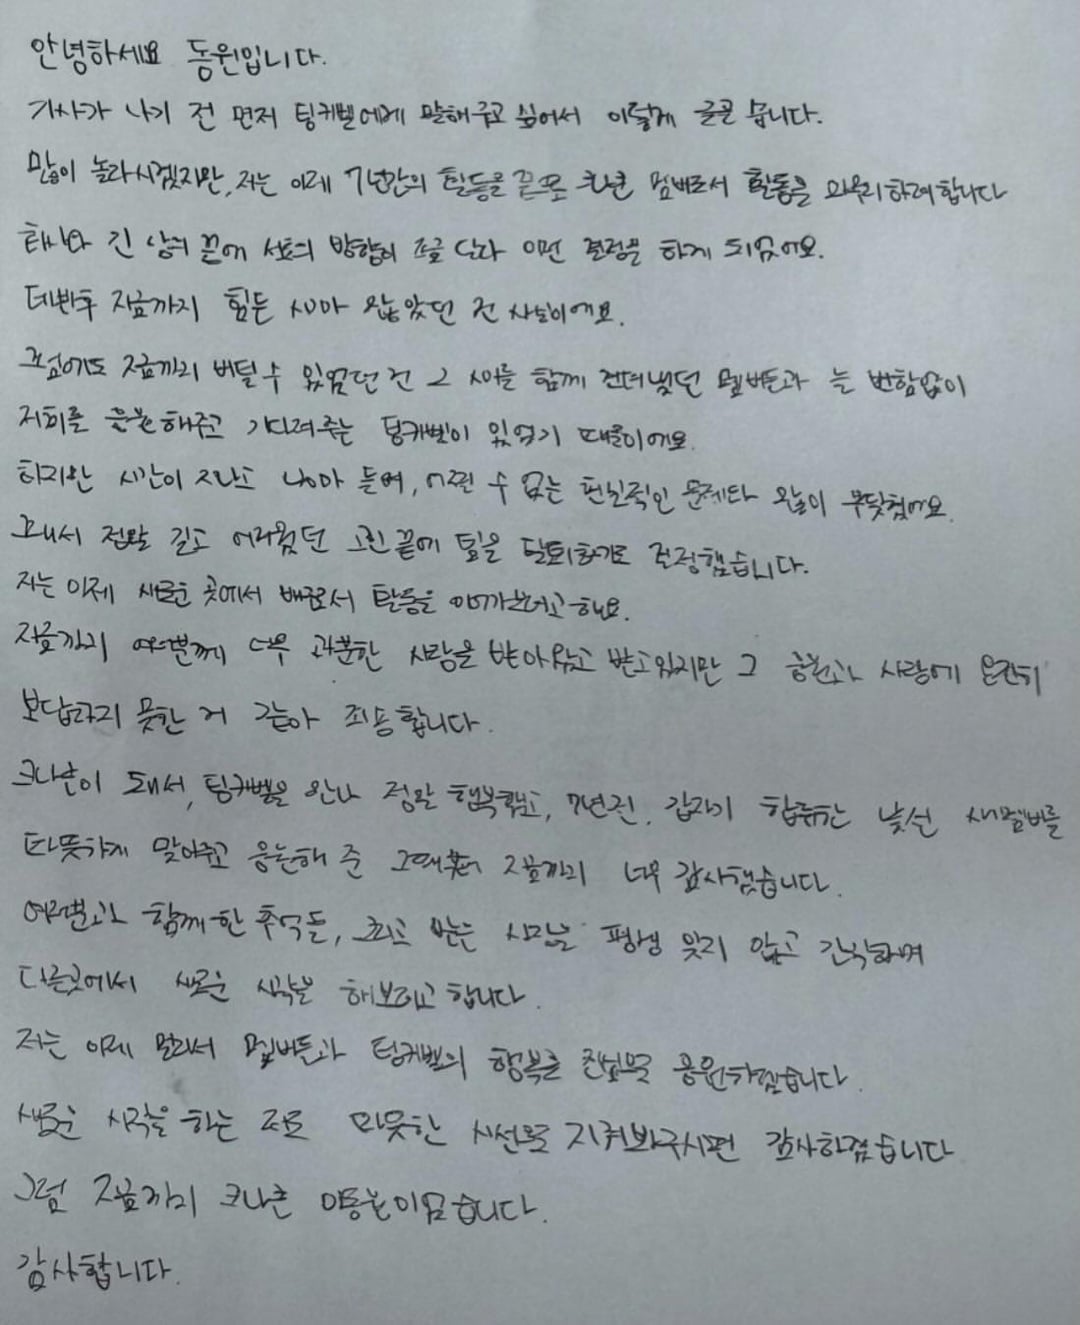 안녕하세요 동원입니다.
기사가 나기 전 먼저 팅커벨에게 말해주고 싶어서 이렇게 글을 씁니다.
많이 놀라시겠지만, 저는 이제 7년간의 활동을 끝으로 크나큰 멤버로서 활동을 마무리하려합니다
회사와 긴 상의 끝에 서로의 방향이 조금 달라 이런 결정을 하게 되었어요.
데뷔후 지금까지 힘든 시간이 많았던 건 사실이에요.
그럼에도 지금까지 버틸 수 있었던 건 그 시간을 함께 견뎌냈던 멤버들과 늘 변함없이
저희를 응원해주고 기다려주는 팅커벨이 있었기 때문이에요.
하지만 시간이 지나고 나이가 들며, 어쩔 수 없는 현실적인 문제와 많이 부딪혔어요.
그래서 정말 길고 어려웠던 고민 끝에 팀을 탈퇴하기로 결정했습니다.
저는 이제 새로운 곳에서 배우로서 활동을 이어가보려고 해요.
지금까지 여러분께 너무 과분한 사랑을 받아왔고 받고있지만 그 응원과 사랑에 온전히
보답하지 못한 거 같아 죄송합니다.
크나큰이 돼서, 팅커벨을 만나 정말 행복했고, 7년전. 갑자기 합류한 낯선 새멤버를
따뜻하게 맞아주고 응원해 준 그때부터 지금까지 너무 감사했습니다.
여러분과 함께한 추억들, 그리고 받은 사랑을 평생 잊지 않고 간직하며
다른곳에서 새로운 시작을 해보려고 합니다.
저는 이제 멀리서 멤버들과 팅커벨의 행복을 진심으로 응원하겠습니다.
새로운 시작을 하는 저도 따뜻한 시선으로 지켜봐주시면 감사하겠습니다
그럼 지금까지 크나큰 이동원이었습니다.
감사합니다.